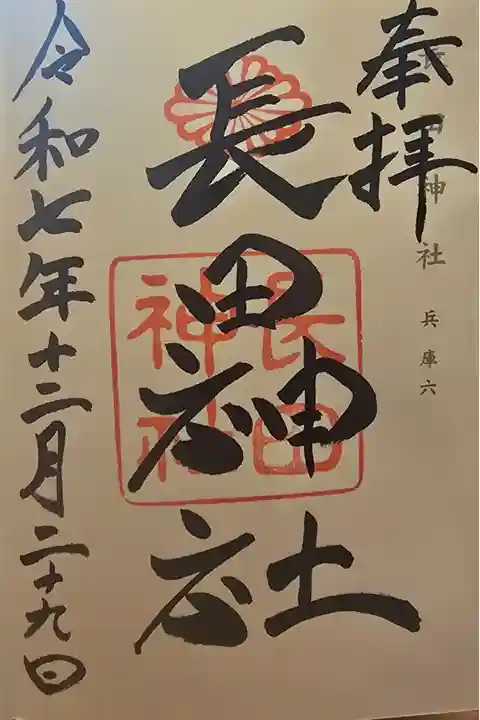 奉拝
長田神社
兵庫六
長田神社
長田神社
令和七年十二月二十九日